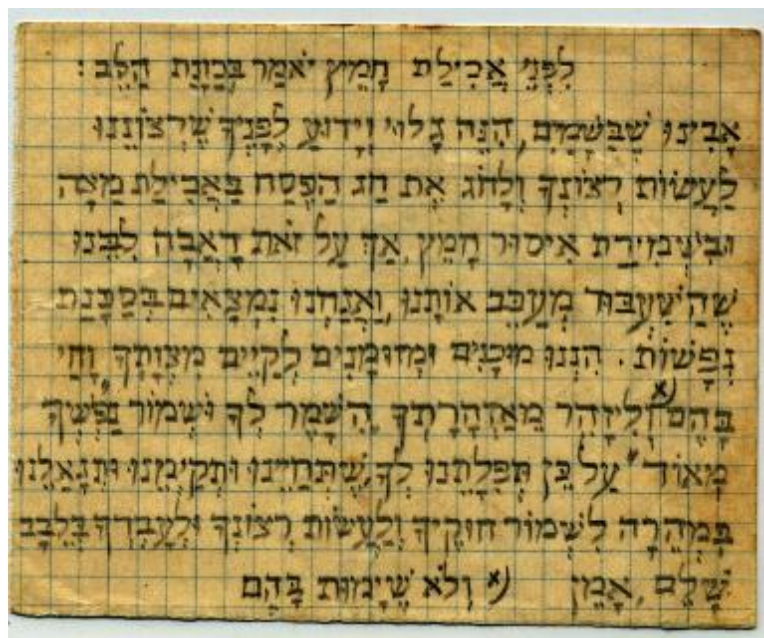 לִפְנֵי אֲכִילַת חָמֵץ יֹאמַר בְּכַוָּנַת הַלֵּב :
אָבִינוּ שֶׁבַּשָּׁמַיִם, הִנֵּה גָלוּי וְיָדוּעַ לְפָנֶיךָ שֶׁרְצוֹנֵנוּ
לַעֲשׂוֹת רְצוֹנְךָ וְלָחֹג אֶת חַג הַפֶּסַח בַּאֲכִילַת מַצָּה
וּבִשְׁמִירַת אִיסוּר חָמֵץ, אַךְ עַל זֹאת דָאֲבָה לִבֵּנוּ
שֶׁהַשִּׁעְבּוּד מְעַכֵּב אוֹתָנוּ, וַאֲנַחְנוּ נִמְצָאִים בְּסַכָּנַת
נְפָשׁוֹת. הִנְנוּ מוּכָנִים וּמְזוּמָנִים לְקַיֵּים מִצְוָתְךָ "וָחַי
בָּהֶם" x) וְלִיזָהֵר מֵאַזְהָרָתְךָ "הִשָּׁמֶר לְךָ וּשְׁמוֹר נַפְשְׁךָ
מְאוֹד" עַל כֵּן תְּפִלָּתֵנוּ לְךָ שֶׁתְּחַיֵּינוּ וּתְקַיְּמֵנוּ וְתִגְאָלֵנוּ
בִּמְהֵרָה לִשְׁמוֹר חוּקֶיךָ וְלַעֲשׂוֹת רְצוֹנְךָ וּלְעָבְדְּךָ בְּלֵבָב
שָׁלֵם, אָמֵן x) וְלֹא שֶׁיָּמוּת בָּהֶם